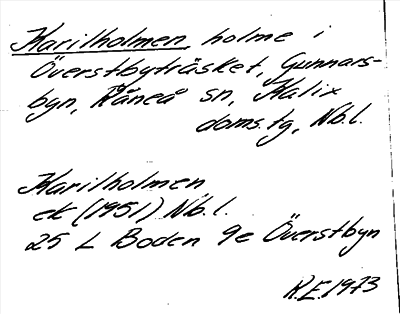 Karilholmen, holme i
Överstbyträsket, Gunnars-
byn, Råneå sn, Kalix
doms.tg, Nb.l.
Karilholmen
ek (1951) Nb.l.
25 L Boden 9e Överstbyn
R.E. 1973